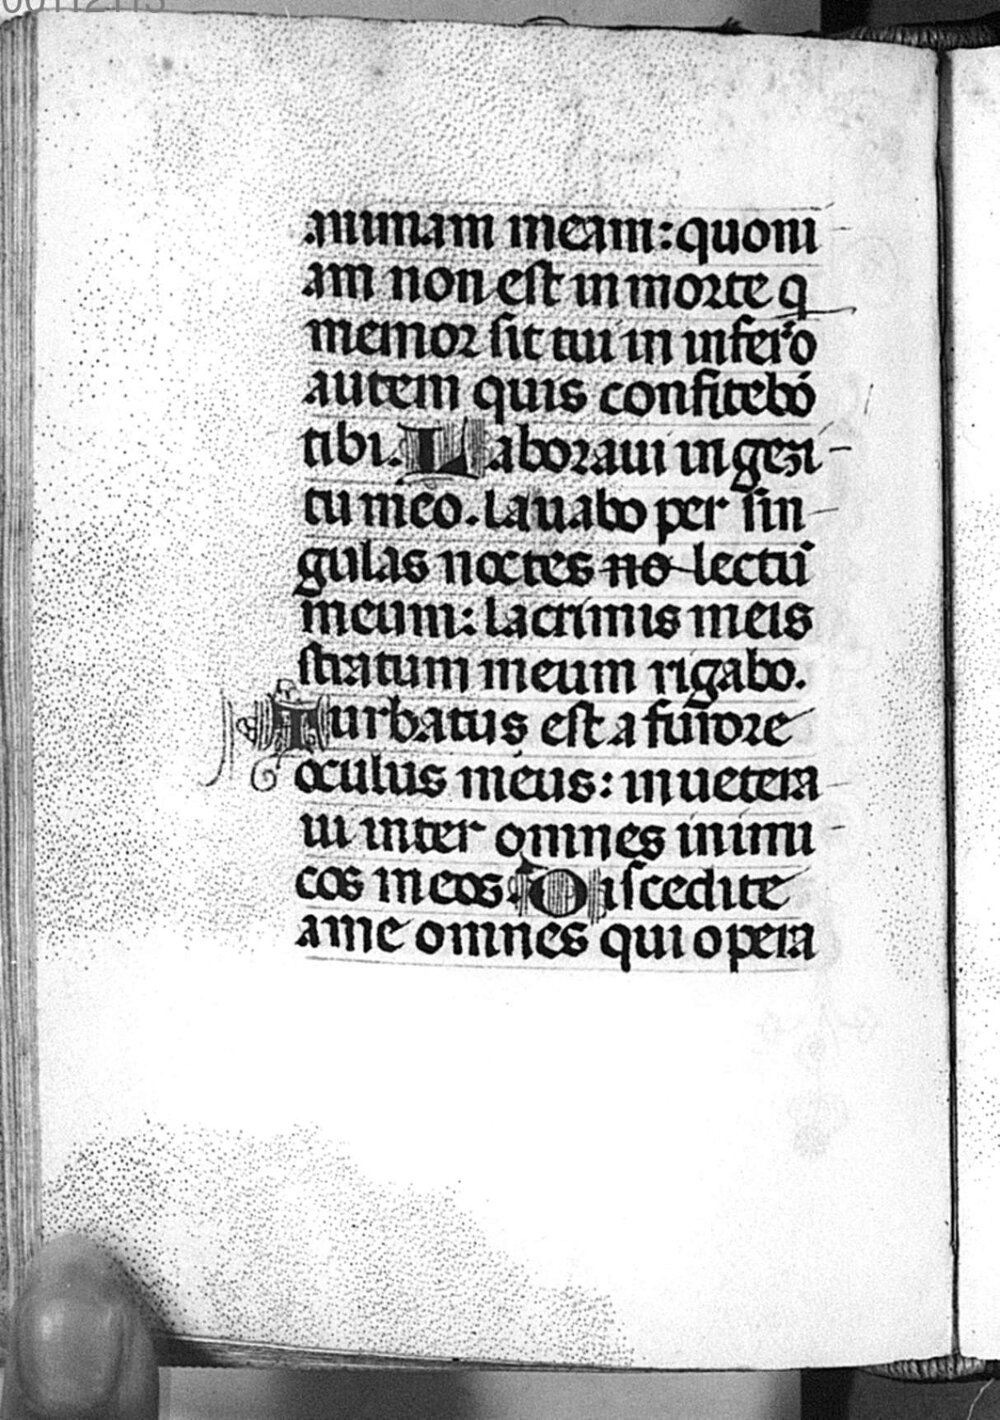 00112113
animam meam: quoni
am non est in morte q
memor sit tui in infer̄o
autem quis confitebō
tibi. Laboraui in gezi
tu meo. lauabo per sin
gulas noctes no lectū
meum: lacrimis meis
stratum meum rigabo.
Turbatus est a furore
oculus meus: inuetera
ui inter omnes inimi
cos meos. Discedite
ame omnes qui opera